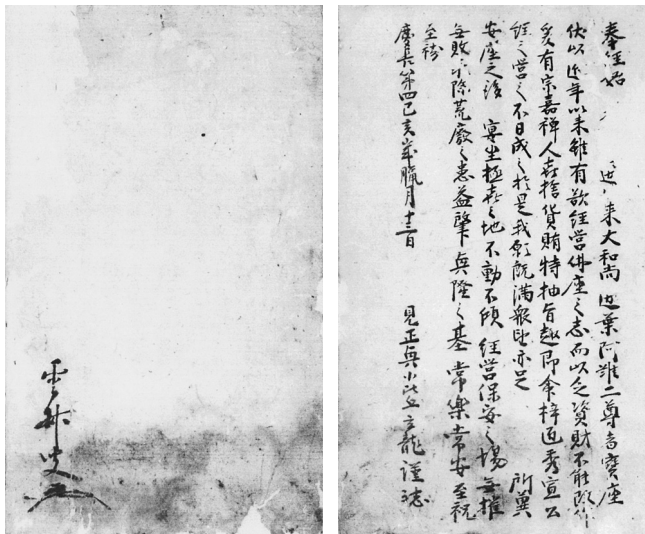 奉経始 迦来大和尚迦葉阿難二尊者寶座
伏以近年以来雖有欲経営佛座之志而以乏資財不能
爰有宗嘉禅人喜捨貨賄特抽旨趣即命梓匠秀宣公
経之営之不日成之於是我願既満衆望亦足 所冀
安座之後 宴坐極喜之地不動不傾 経営保安之場無摧
無敗 永除荒廃之患益肇興隆之基 常樂常安至祝
至祷
慶長第四己亥歳臘月十二日 見正興小比丘玄龍謹誌